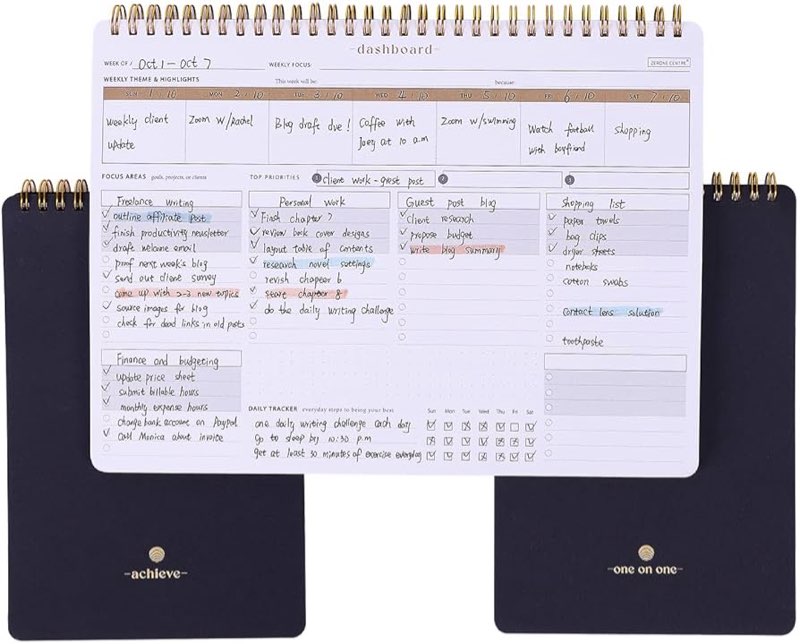 -dashboard-
WEEK OF / Oct 1 - Oct 7 WEEKLY FOCUS:
ZERONE CENTRE
WEEKLY THEME & HIGHLIGHTS This week will be: because:
SUN 1/10 MON 2/10 TUE 3/10 WED 4/10 THU 5/10 FRI 6/10 SAT 7/10
weekly client update
Zoom w/Rachel
Blog drafts due!
Coffee with Joey at 10 a.m
Zoom w/swimming
Watch football with boyfriend
Shopping
FOCUS AREAS goals, projects, or clients
TOP PRIORITIES 1 client work - guest post 2 3
Freelance writing
outline affiliate post
finish productivity newsletter
draft welcome email
proof next week's blog
send out client survey
come up with 2-3 new topics
source images for blog
check for dead links in old posts
Personal work
Finish chapter 7
review book cover designs
layout table of contents
research novel settings
revish chapter 6
start chapter 8
do the daily writing challenge
Guest post blog
client research
propose budget
write blog summary
Shopping list
paper towels
bag clips
dryer sheets
notebooks
cotton swabs
contact lens solution
toothpaste
Finance and budgeting
update price sheet
submit billable hours
monthly expense hours
change bank account on Paypal
Call Monica about invoice
DAILY TRACKER everyday steps to bring your best Sun Mon Tue Wed Thu Fri Sat
one daily writing challenge each day
Go to sleep by 10:30 p.m
get at least 30 minutes of exercise everyday
-achieve-
-one on one-